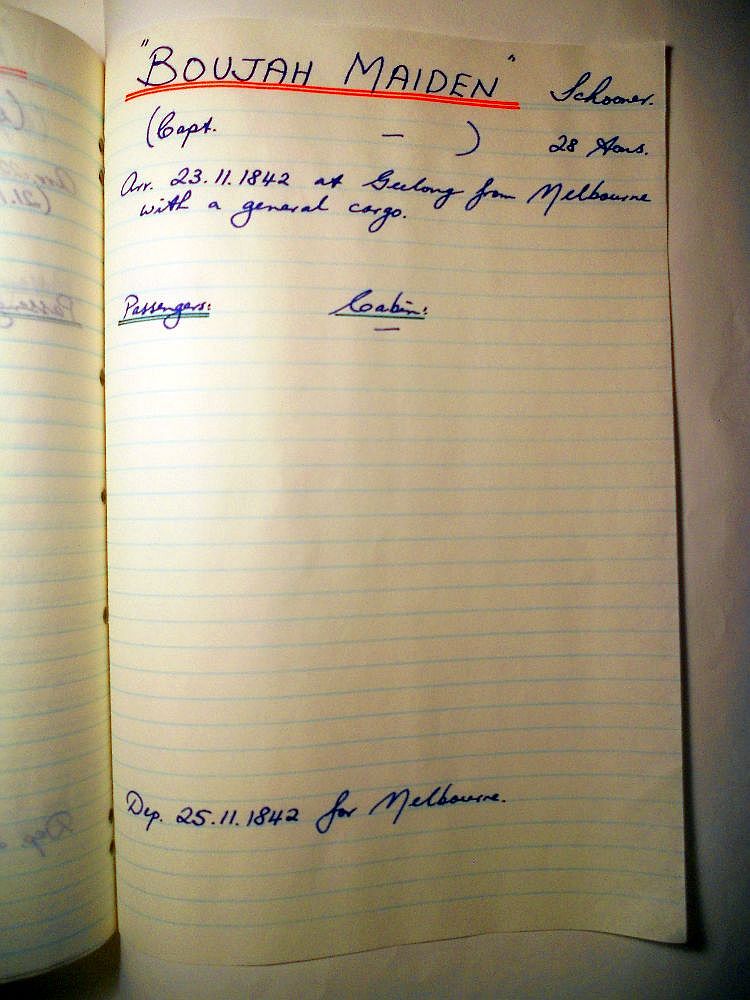 "BOUJAH MAIDEN" Schooner.
(Capt. — ) 28 tons.
Arr. 23.11.1842 at Geelong from Melbourne
with a general cargo.
Passengers: Cabin:
—
Dep. 25.11.1842 for Melbourne.